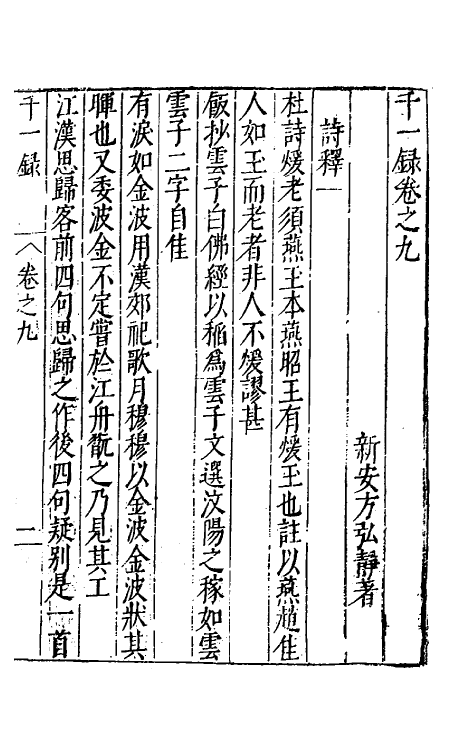 千一録卷之九
新安方弘靜著
詩釋一
杜詩煖老須燕玉本燕昭王有煖玉也註以燕趙佳
人如玉而老者非人不煖謬甚
飯抄雲子白佛經以稻爲雲子文選汶陽之稼如雲
雲子二字自佳
有淚如金波用漢郊祀歌月穆穆以金波金波狀其
暉也又委波金不定嘗於江舟翫之乃見其工
江漢思歸客前四句思歸之作後四句疑別是一首
千一録
卷之九
一